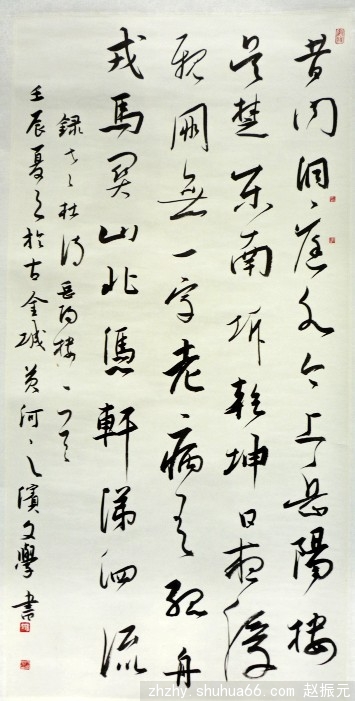 昔闻洞庭水今上岳陽楼
吴楚东南坼乾坤日夜浮
親朋無一字老病有孤舟
戎馬関山北憑軒涕泗流
録杜诗岳阳楼一首
壬辰夏日於古金城黄河之濱文學書
zhzhy.shuhua66.com 赵振元